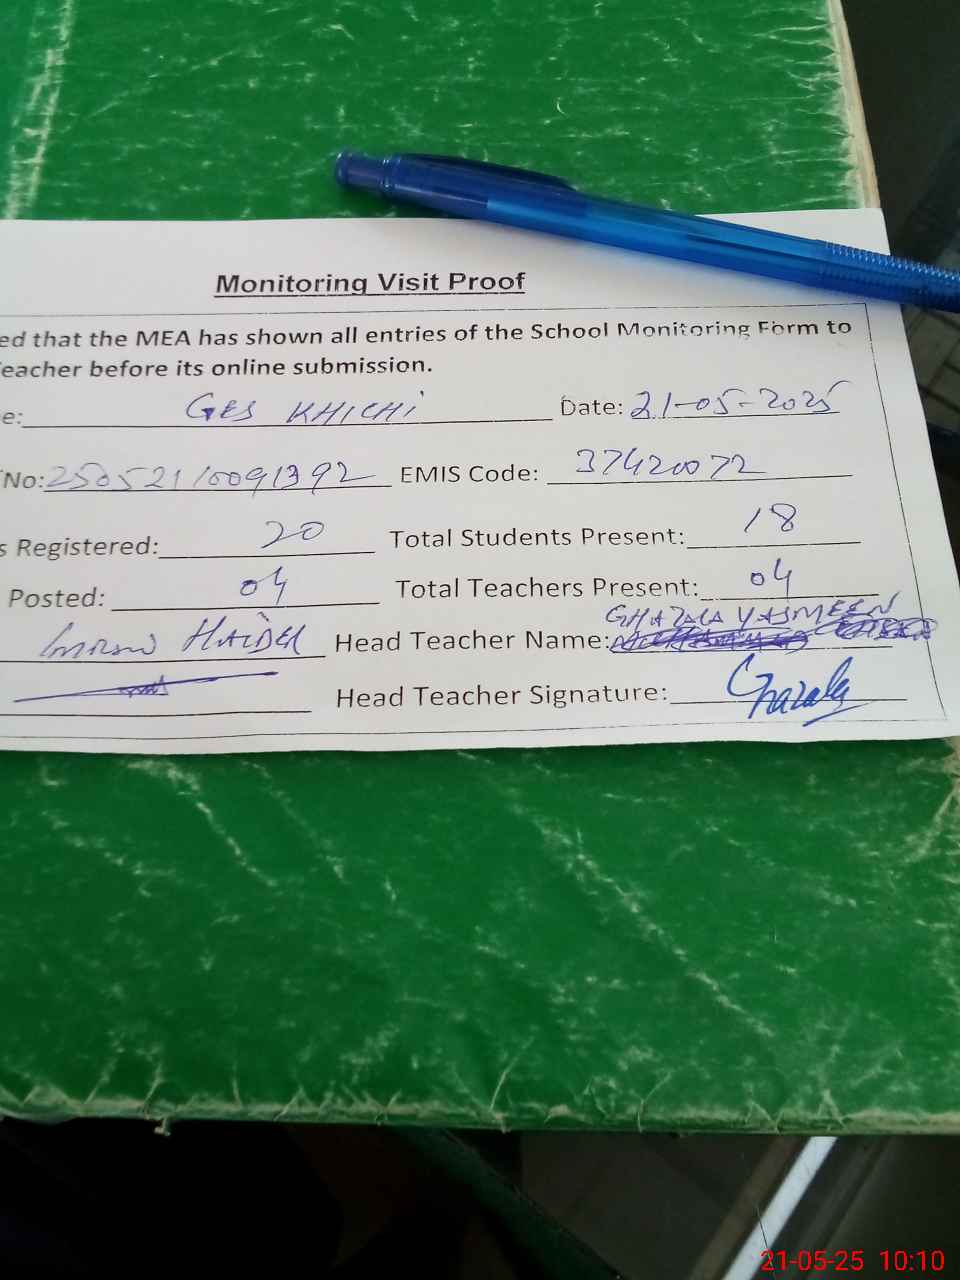 Monitoring Visit Proof
ed that the MEA has shown all entries of the School Monitoring Form to
eacher before its online submission.
e: GES KHICHI Date: 21-05-2025
No: 25052110091392 EMIS Code: 37420072
s Registered: 20 Total Students Present: 18
Posted: 04 Total Teachers Present: 04
Imran HAIDER Head Teacher Name: GHAZALA YASMEEN
Head Teacher Signature: Ghazala
21-05-25 10:10